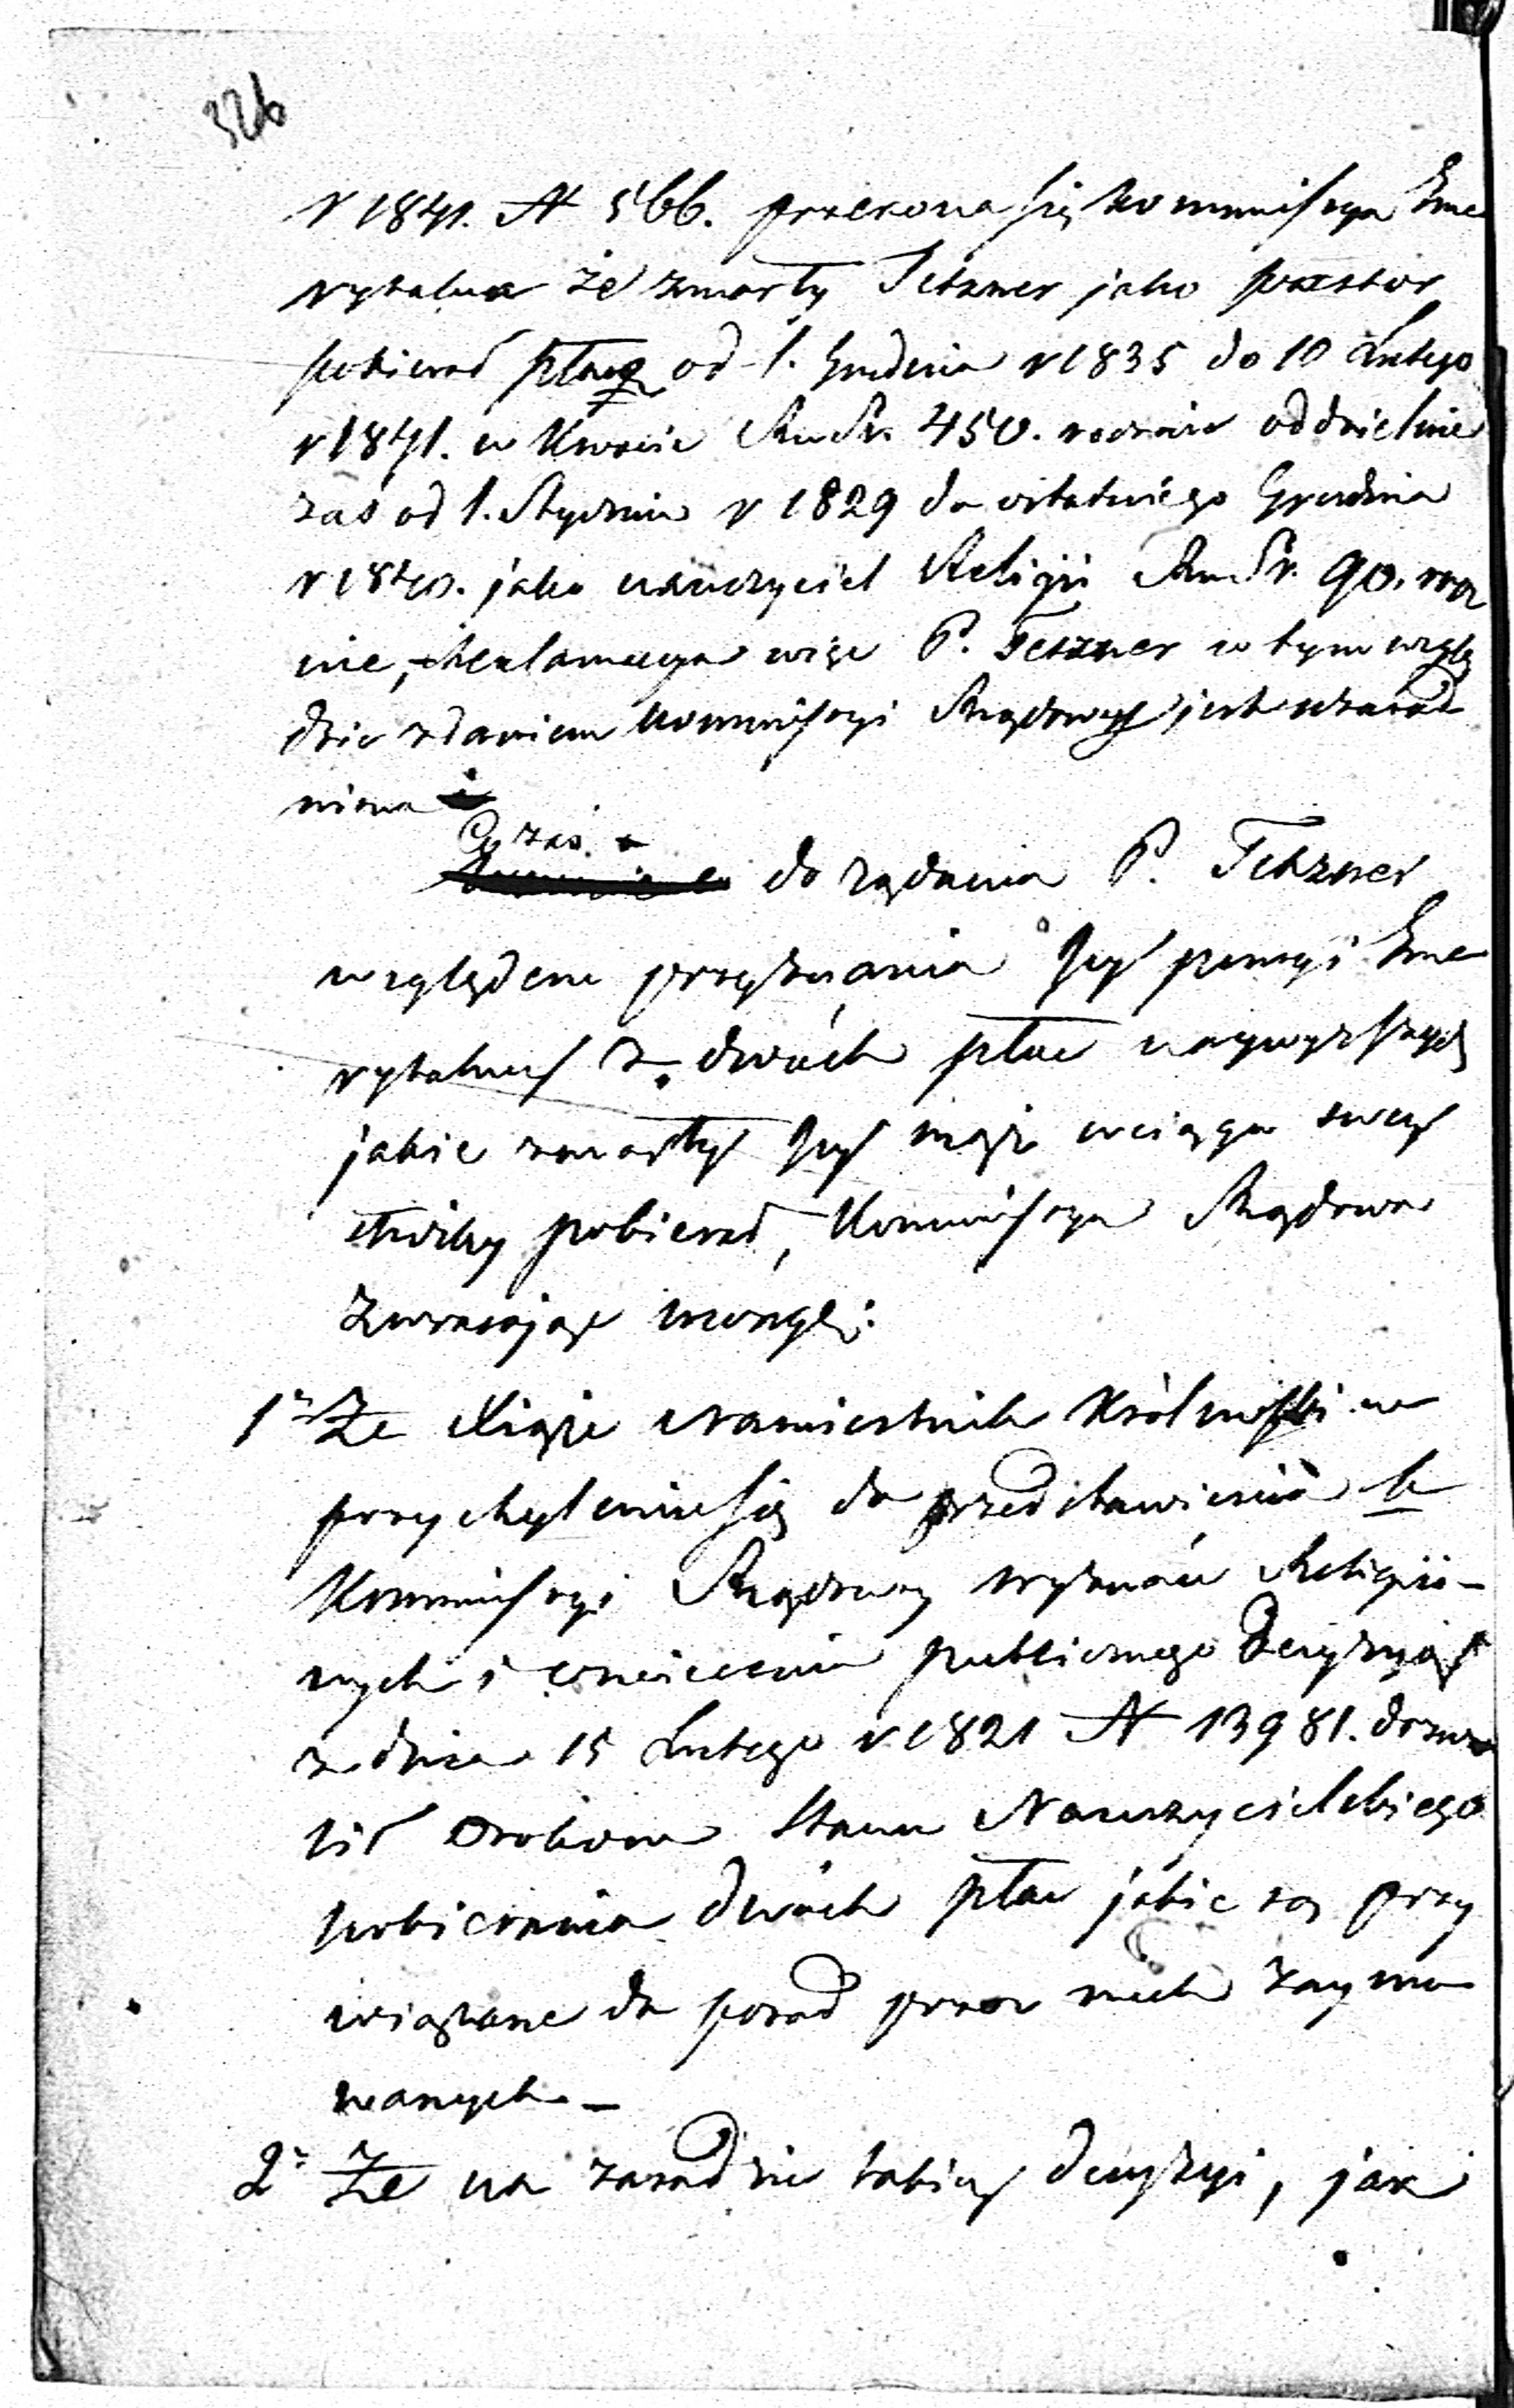 326
r 1841. N 566. przekona się Kommissya Eme
rytalna że zmarły Tetzner jako pastor
pobierał płacę od 1. Grudnia r 1835 do 10 Lutego
r 1841. w kwocie Rub Sr. 450. rocznie oddzielnie
zaś od 1. Stycznia r 1829 do ostatniego Grudnia
r 1840. jako nauczyciel Religii Rub Sr. 90. rocz
nie, Reklamacya więc P. Tetzner w tym wzglę
dzie zdaniem Kommissyi Rządowej jest uzasad
niona
Co zaś do żądania P. Tetzner
względem przyznania Jej pensyi Eme
rytalnej z dwóch płac naywyższych
jakie zmarły Jej mąż w ciągu swej
służby pobierał, Kommissya Rządowa
zwracając uwagę:
1. Że Xiąże Namiestnik Królewski w
przychyleniu się do przedstawienia b.
Kommissyi Rządowej wyznań Religii-
nych i oświecenia publicznego Decyzyą
z dnia 15 Lutego r 1821 N 13981. dozwo
lił Osobom Stanu Nauczycielskiego
pobierania dwóch płac jakie są przy
wiązane do posad przez nich zaymo
wanych. —
2. Że na zasadzie takiej decyzyi, jak